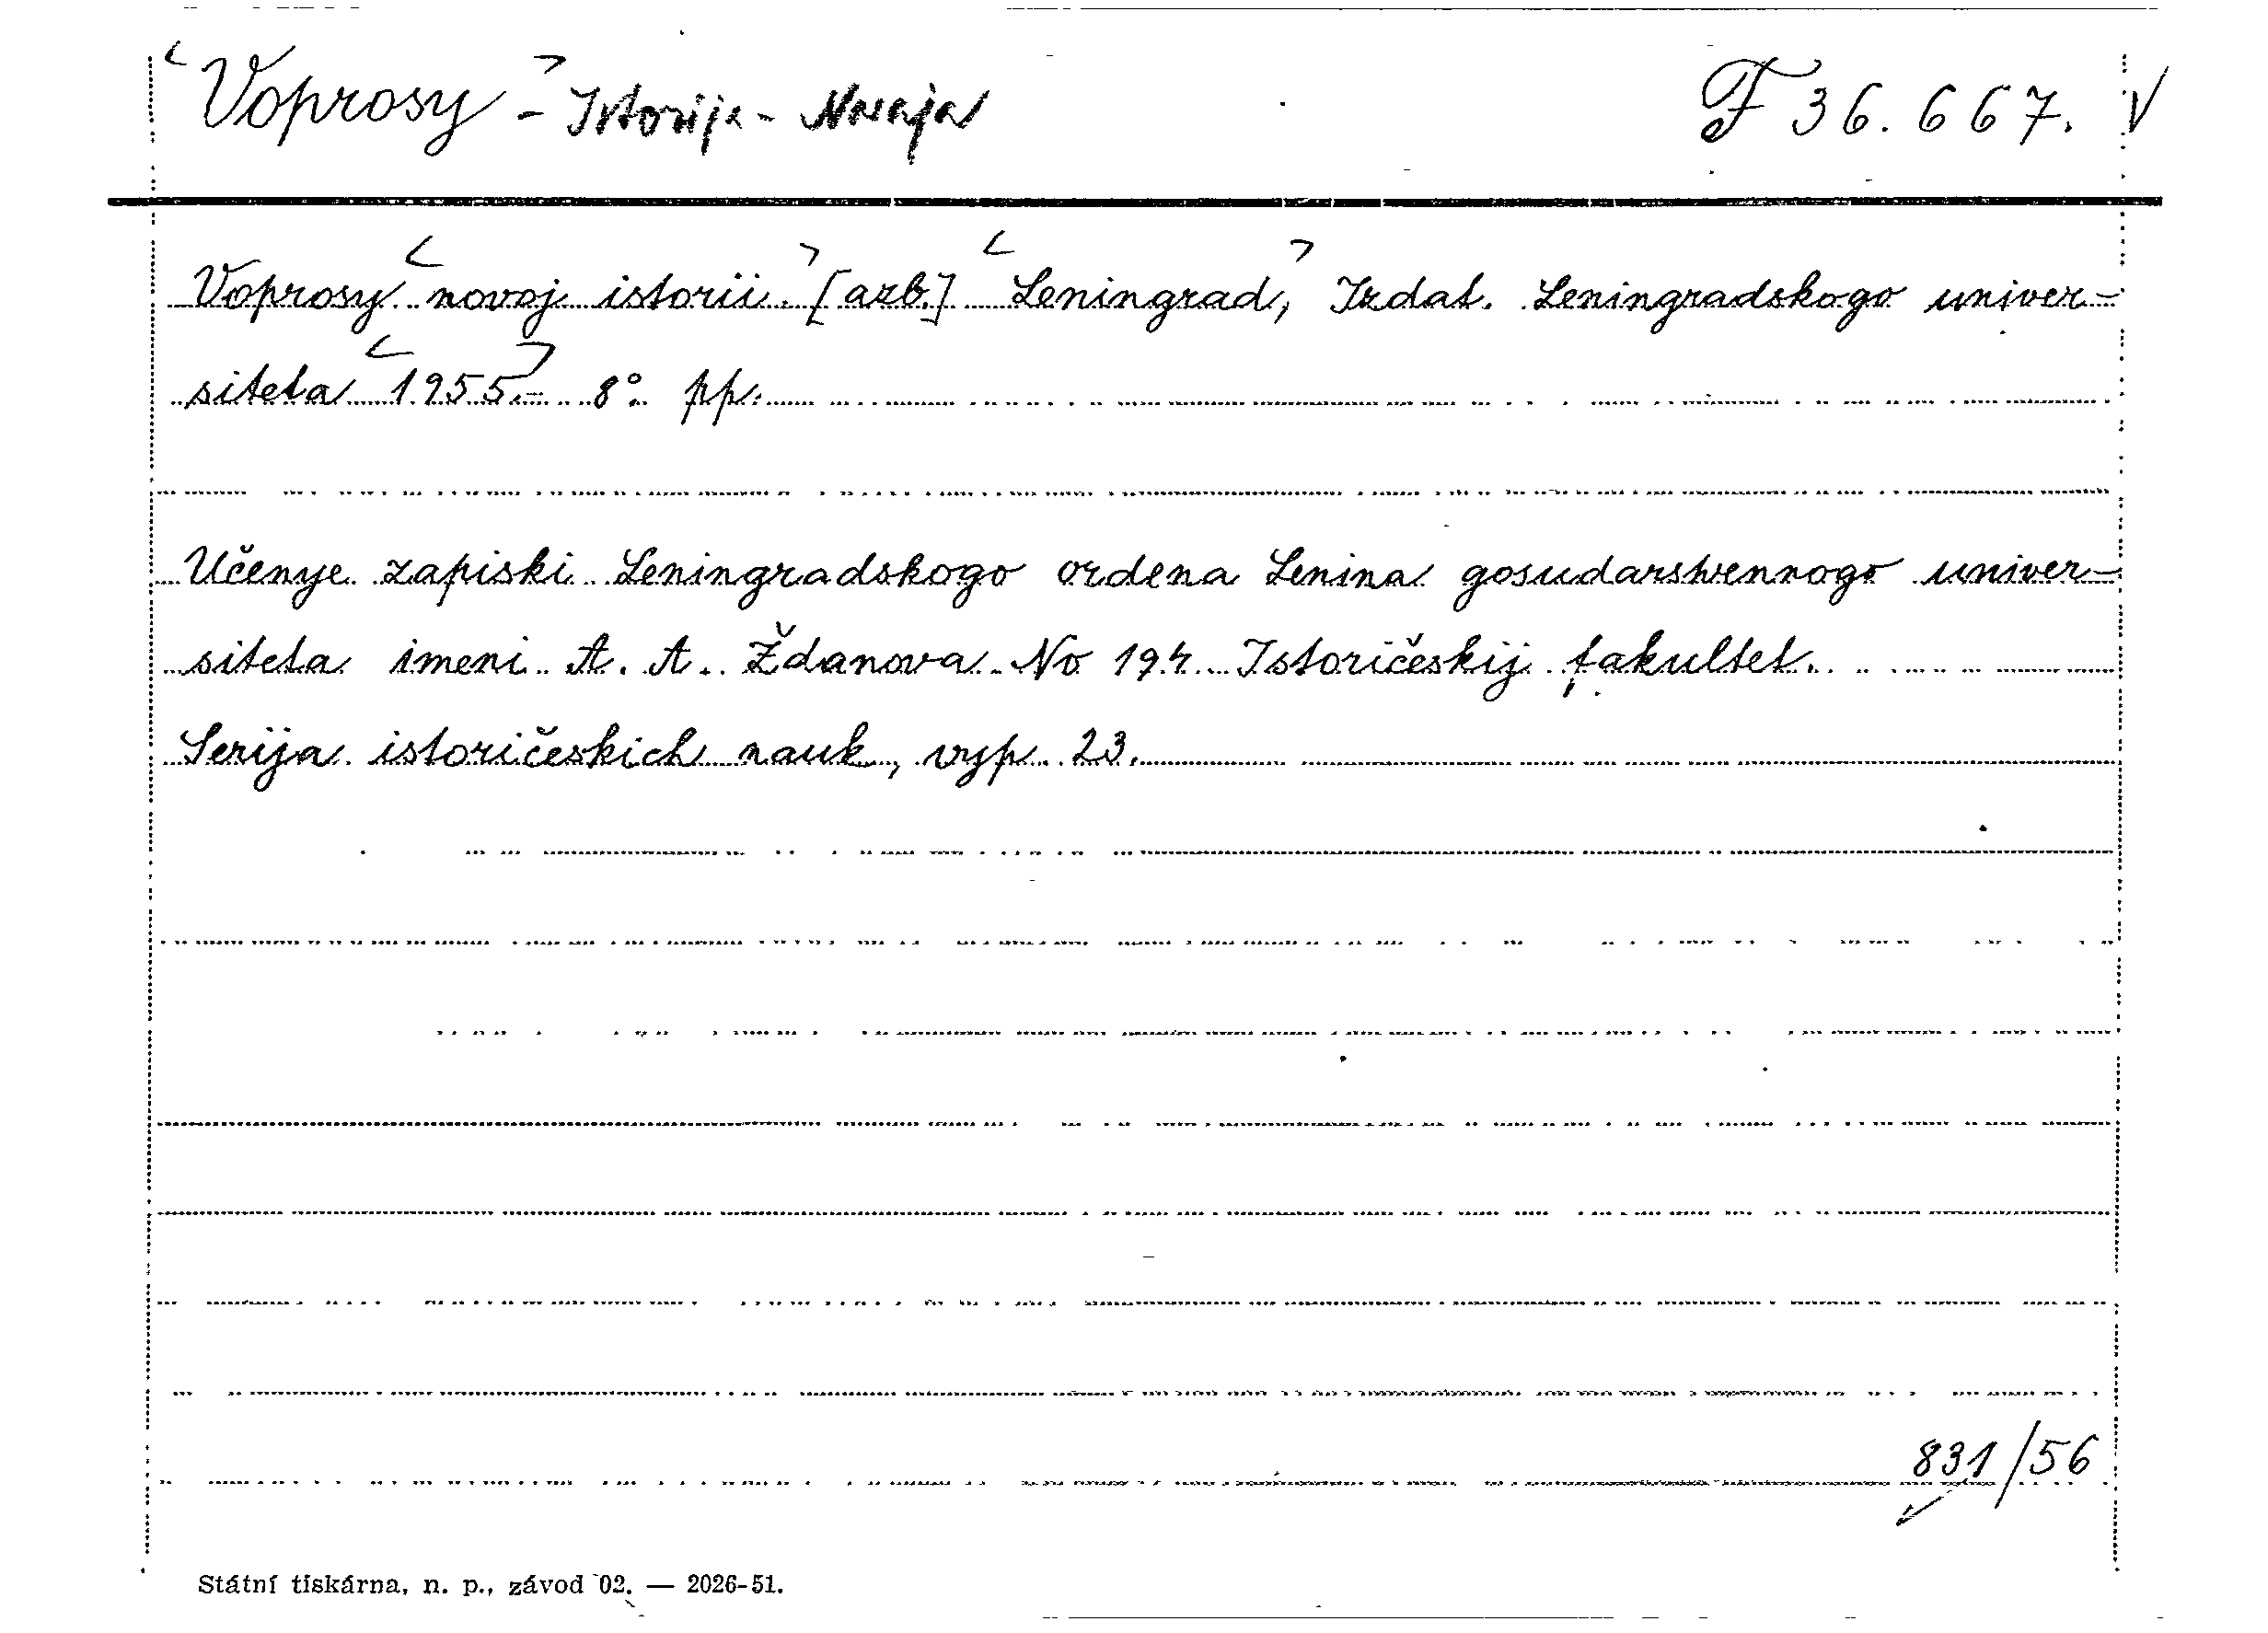 Voprosy - Istorija - Novaja
F 36.667. V
Voprosy novoj istorii. [azb.] Leningrad, Izdat. Leningradskogo univer-
siteta 1955.- 8° pp.
Učenye zapiski Leningradskogo ordena Lenina gosudarstvennogo univer-
siteta imeni A. A. Ždanova No 194 Istoričeskij fakultet.
Serija istoričeskich nauk, vyp. 23.
831/56
Státní tiskárna, n. p., závod 02. — 2026-51.